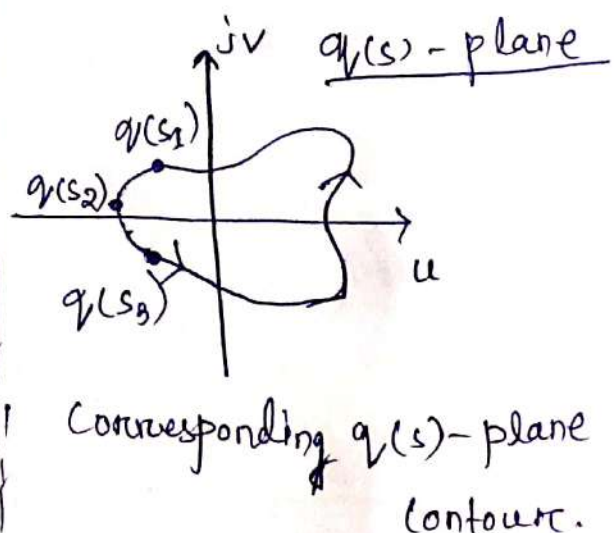 jv
q(s) - plane
q(s1)
q(s2)
u
q(s3)
Corresponding q(s)-plane
Contour.